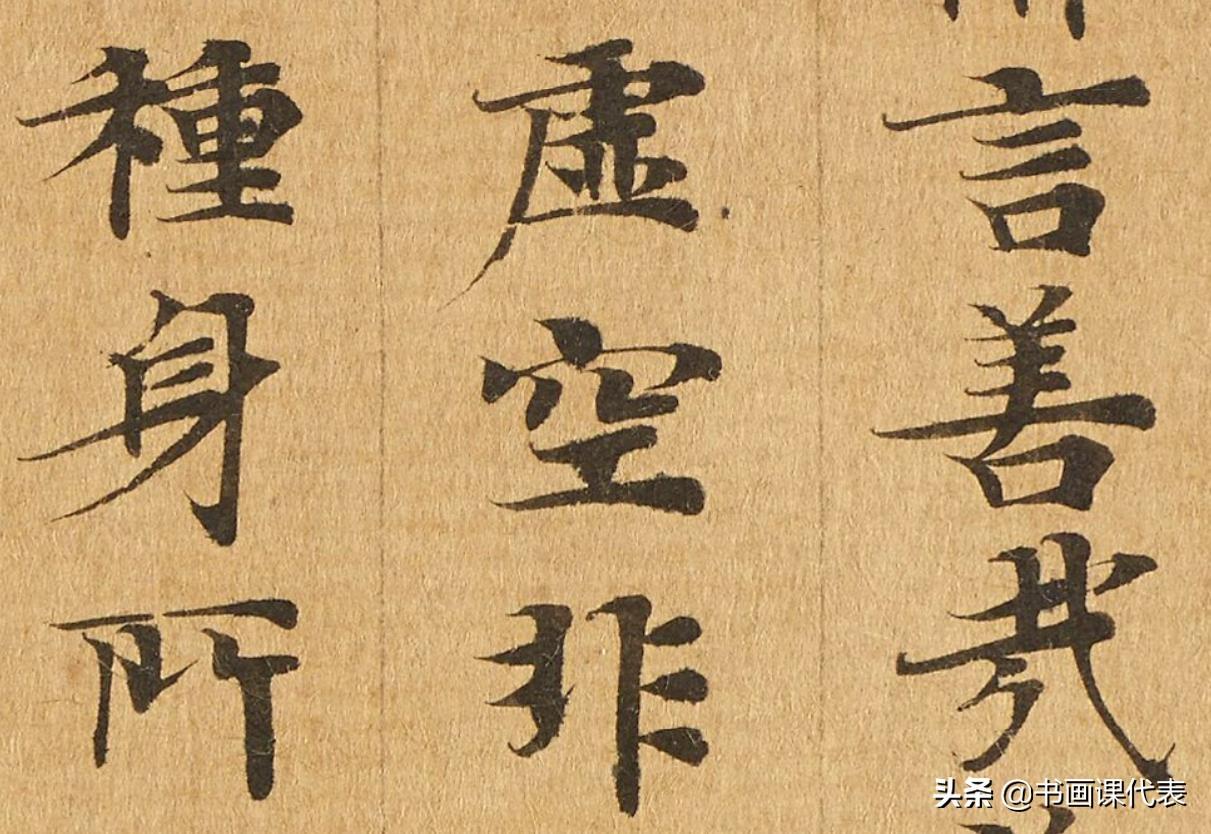 言善哉
虛空非
種身所
头条 @书画课代表